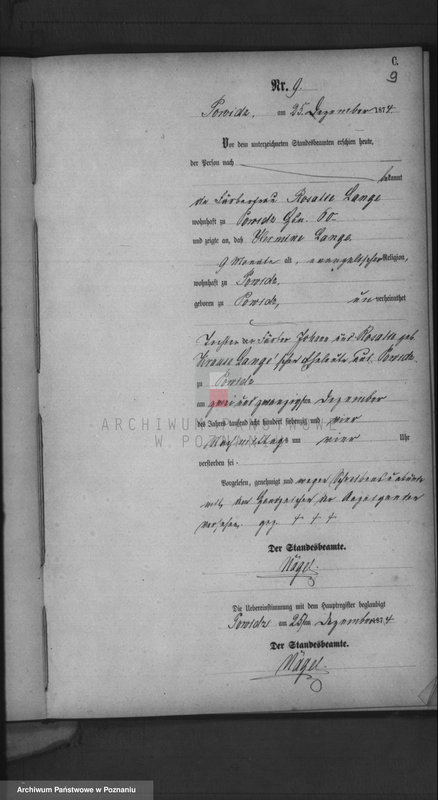 C.
9
Nr. 9.
Powidz, am 25. Dezember 1874
Vor dem unterzeichneten Standesbeamten erschien heute,
der Person nach
bekannt
die Färberfrau Rosalie Lange
wohnhaft zu Powidz No. 60
und zeigte an, daß Hermine Lange
9 Monate alt, evangelischer Religion,
wohnhaft zu Powidz,
geboren zu Powidz, unverheirathet
Tochter der Färber Johann und Rosalie geb.
Krause Lange'schen Eheleute aus Powidz
zu Powidz
am zwei und zwanzigsten Dezember
des Jahres tausend acht hundert siebenzig und vier
Nachmittags um vier Uhr
verstorben sei.
Vorgelesen, genehmigt und wegen
mit den Handzeichen der
versehen. gez. † † †
Der Standesbeamte.
Nägel.
Die Uebereinstimmung mit dem Hauptregister beglaubigt
Powidz am 25ten Dezember 1874
Der Standesbeamte.
Nägel.
ARCHIWUM PAŃSTWOWE
W POZNANIU
Archiwum Państwowe w Poznaniu